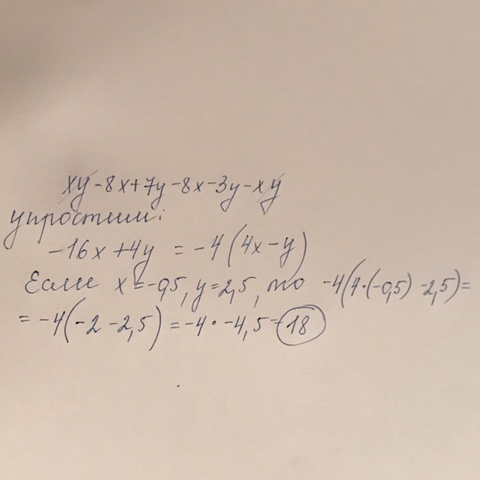 xy-8x+7y-8x-3y-xy
упростим:
-16x+4y = -4(4x-y)
Если x=-0,5, y=2,5, то -4(4·(-0,5)-2,5)=
= -4(-2-2,5)=-4·-4,5=18